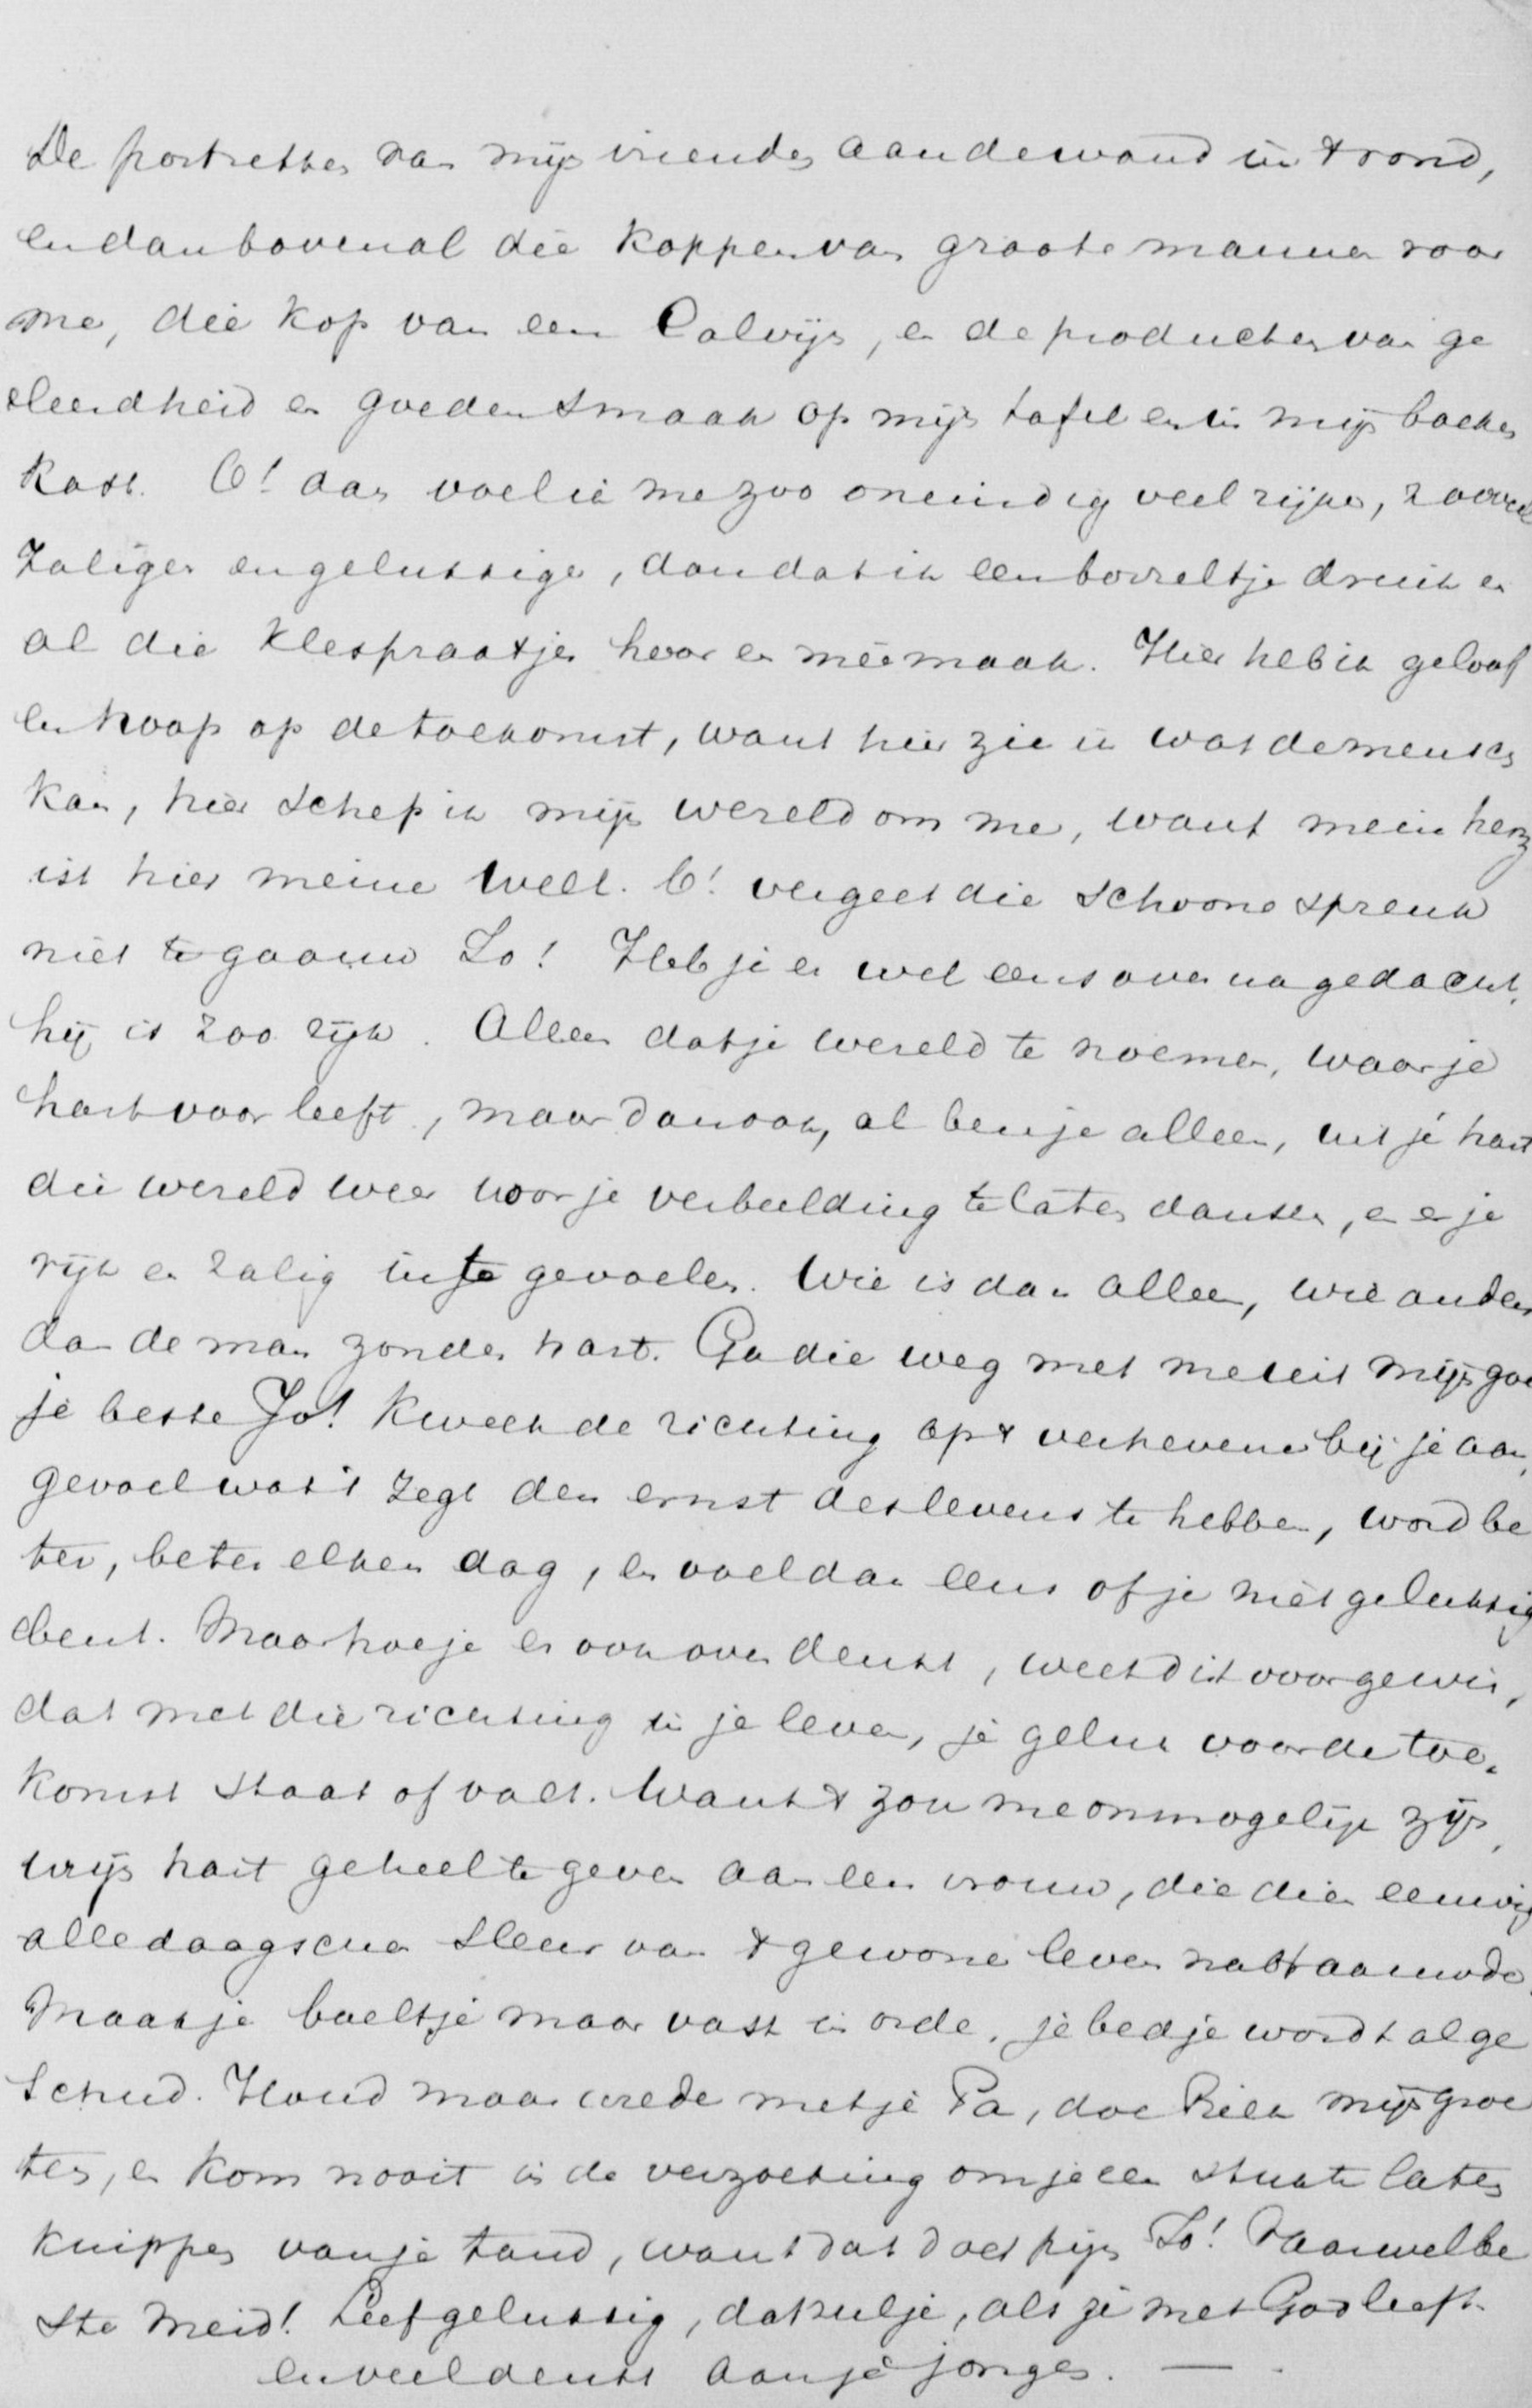 De portretten van mijn vrienden aan de wand in 't rond,
en dan bovenal die koppen van groote mannen voor
me, die kop van een Calvijn, en de producten van ge
leerdheid en goeden smaak op mijn tafel en in mijn boeken
kast. O! dan voel ik me zoo oneindig veel rijker, zooveel
zaliger en gelukkiger, dan dat ik een borreltje drink en
al die klespraatjes hoor en meêmaak. Hier heb ik geloof
en hoop op de toekomst, want hier zie ik wat de mensch
kan, hier schep ik mijn wereld om me, want mein herz
ist hier meine Welt. O! vergeet die schoone spreuk
niet te gaauw Jo! Heb je er wel eens over nagedacht,
hij is zoo rijk. Alleen dat je wereld te noemen, waar je
hart voor leeft, maar dan ook, al ben je alleen, uit je hart
die wereld weer voor je verbeelding te laten dansen, en er je
rijk en zalig in te gevoelen. Wie is dan alleen, wie anders
dan de man zonder hart. Ga die weg met me uit mijn goe
je beste Jo! Kweek de richting op 't verhevene bij je aan,
gevoel wat 't zegt den ernst des levens te hebben, word be
ter, beter elken dag, en voel dan eens of je niet gelukkig
bent. Maar hoe je er ook over denkt, weet dit voor gewis,
dat met die richting in je leven, je geluk voor de toe-
komst staat of valt. Want 't zou me onmogelijk zijn,
mijn hart geheel te geven aan een vrouw, die dien eeuwig
alledaagschen sleur van 't gewone leven
Maak je boeltje maar vast in orde, je bedje wordt al ge
schud. Houd maar vrede met je Pa, doe Riek mijn groe
ten, en kom nooit in de verzoeking om je een stuk te laten
knippen van je tand, want dat doet pijn Jo! Vaarwel be
ste meid! Leef gelukkig, dat zul je, als je met God leeft
en veel denkt aan je jongen. —